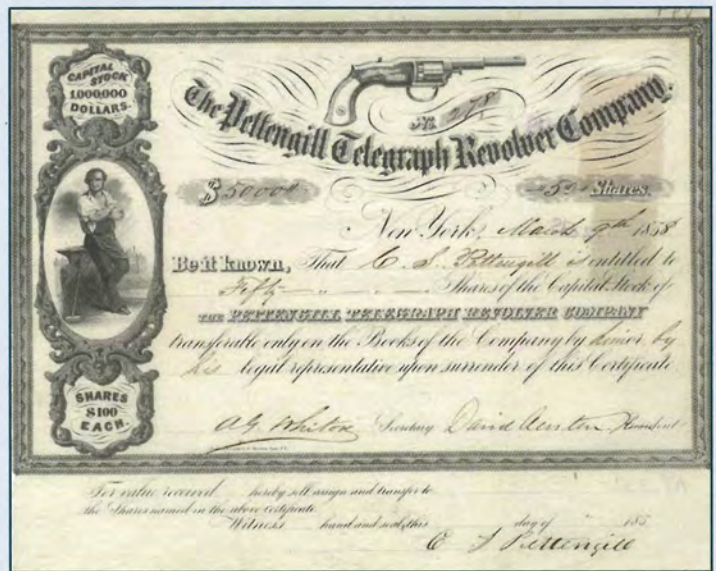 CAPITAL
STOCK
1,000,000
DOLLARS.
No. 278
The Pettengill Telegraph Revolver Company.
$5000
50 Shares.
New York, March 9th 1858
Be it known, That C. S. Pettengill is entitled to
Fifty Shares of the Capital Stock of
THE PETTENGILL TELEGRAPH REVOLVER COMPANY
transferable only on the Books of the Company by him or by
his legal representative upon surrender of this Certificate
SHARES
$100
EACH.
A.G. Secretary David President
For value received hereby sell assign and transfer to
the Shares named in the above certificate
Witness hand and seal this day of 185
C S Pettengill